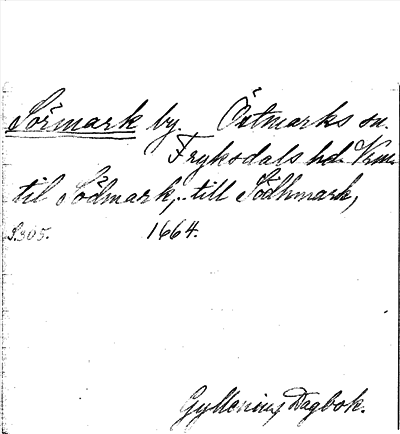 Sörmark by. Östmarks sn.
Fryksdals hd. Vrml.
til Södmark, till Södhmark,
S.305. 1664.
Gyllenius Dagbok.